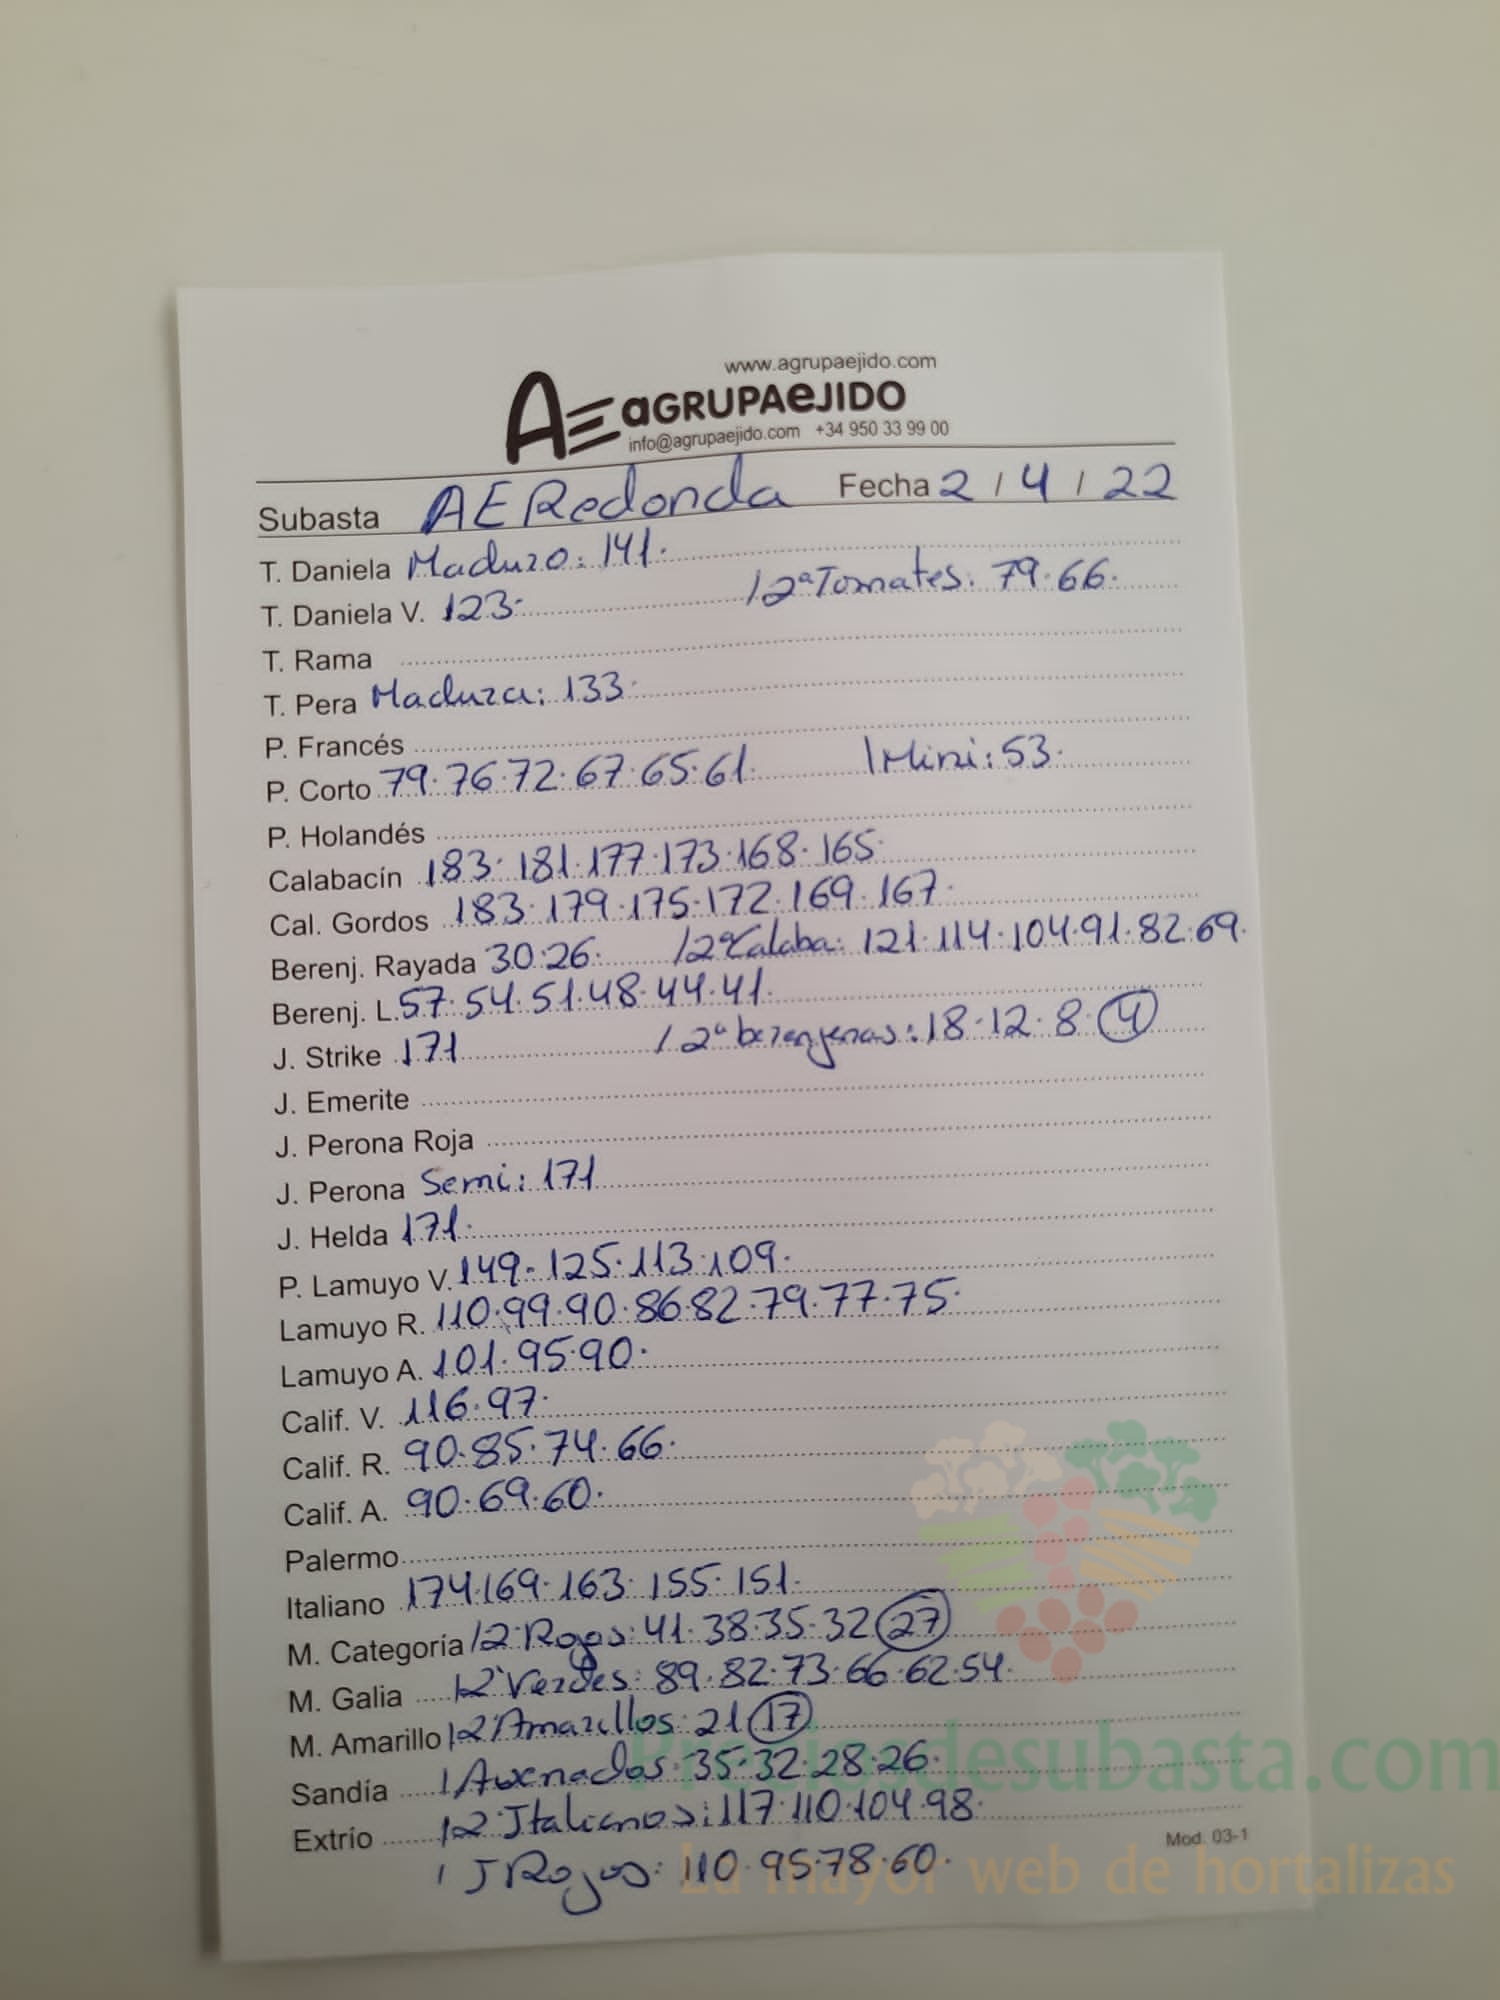 www.agrupaejido.com
AE aGRUPAeJIDO
info@agrupaejido.com +34 950 33 99 00
Subasta AERedonda Fecha 2 / 4 / 22
T. Daniela Maduro: 141.
T. Daniela V. 123. / 2ª Tomates: 79.66.
T. Rama
T. Pera Madura: 133.
P. Francés
P. Corto 79.76.72.67.65.61. / Mini: 53.
P. Holandés
Calabacín 183.181.177.173.168.165.
Cal. Gordos 183.179.175.172.169.167.
Berenj. Rayada 30.26. / 2ª Calaba: 121.114.104.91.82.69.
Berenj. L. 57.54.51.48.44.41.
J. Strike 171 / 2ª berenjenas: 18.12.8.4
J. Emerite
J. Perona Roja
J. Perona Semi: 171
J. Helda 171.
P. Lamuyo V. 149.125.113.109.
Lamuyo R. 110.99.90.86.82.79.77.75.
Lamuyo A. 101.95.90.
Calif. V. 116.97.
Calif. R. 90.85.74.66.
Calif. A. 90.69.60.
Palermo
Italiano 174.169.163.155.151.
M. Categoría / 2ª Rojos: 41.38.35.32 27
M. Galia / 2ª Verdes: 89.82.73.66.62.54.
M. Amarillo / 2ª Amarillos: 21 17
Sandía / Asenados: 35.32.28.26.
Extrío / 2ª Italianos: 117.110.104.98.
/ J Rojos: 110.95.78.60.
Mod. 03-1
Preciosdesubasta.com
La mayor web de hortalizas